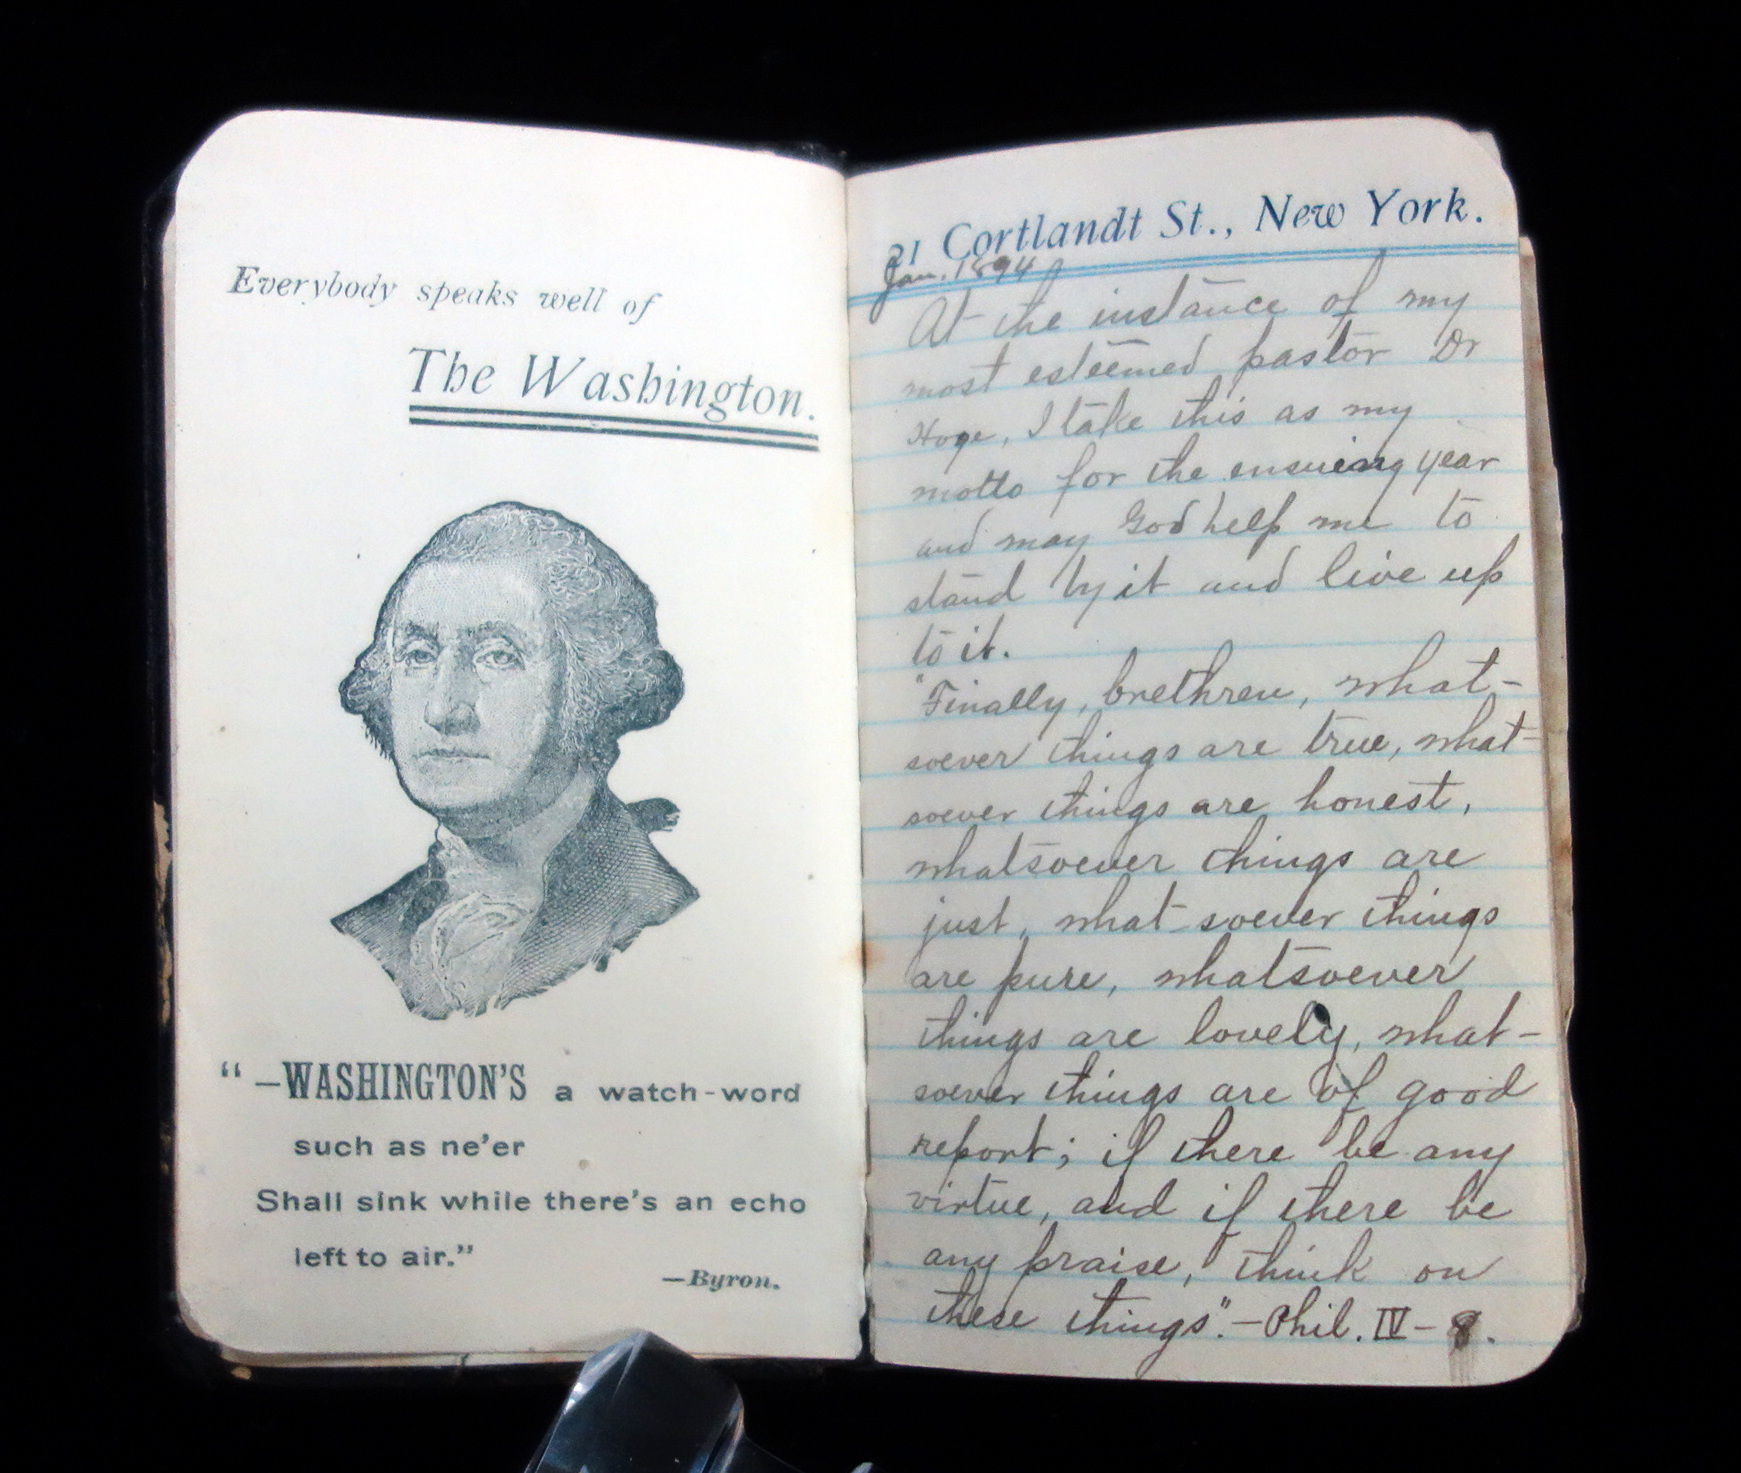 Everybody speaks well of
The Washington.
"—WASHINGTON'S a watch-word
such as ne'er
Shall sink while there's an echo
left to air."
—Byron.
21 Cortlandt St., New York.
Jan. 1894
At the instance of my
most esteemed pastor Dr
Hoge, I take this as my
motto for the ensuing year
and may God help me to
stand by it and live up
to it.
"Finally, brethren, what-
soever things are true, what-
soever things are honest,
whatsoever things are
just, what-soever things
are pure, whatsoever
things are lovely, what-
soever things are of good
report; if there be any
virtue, and if there be
any praise, think on
these things".—Phil. IV—8.